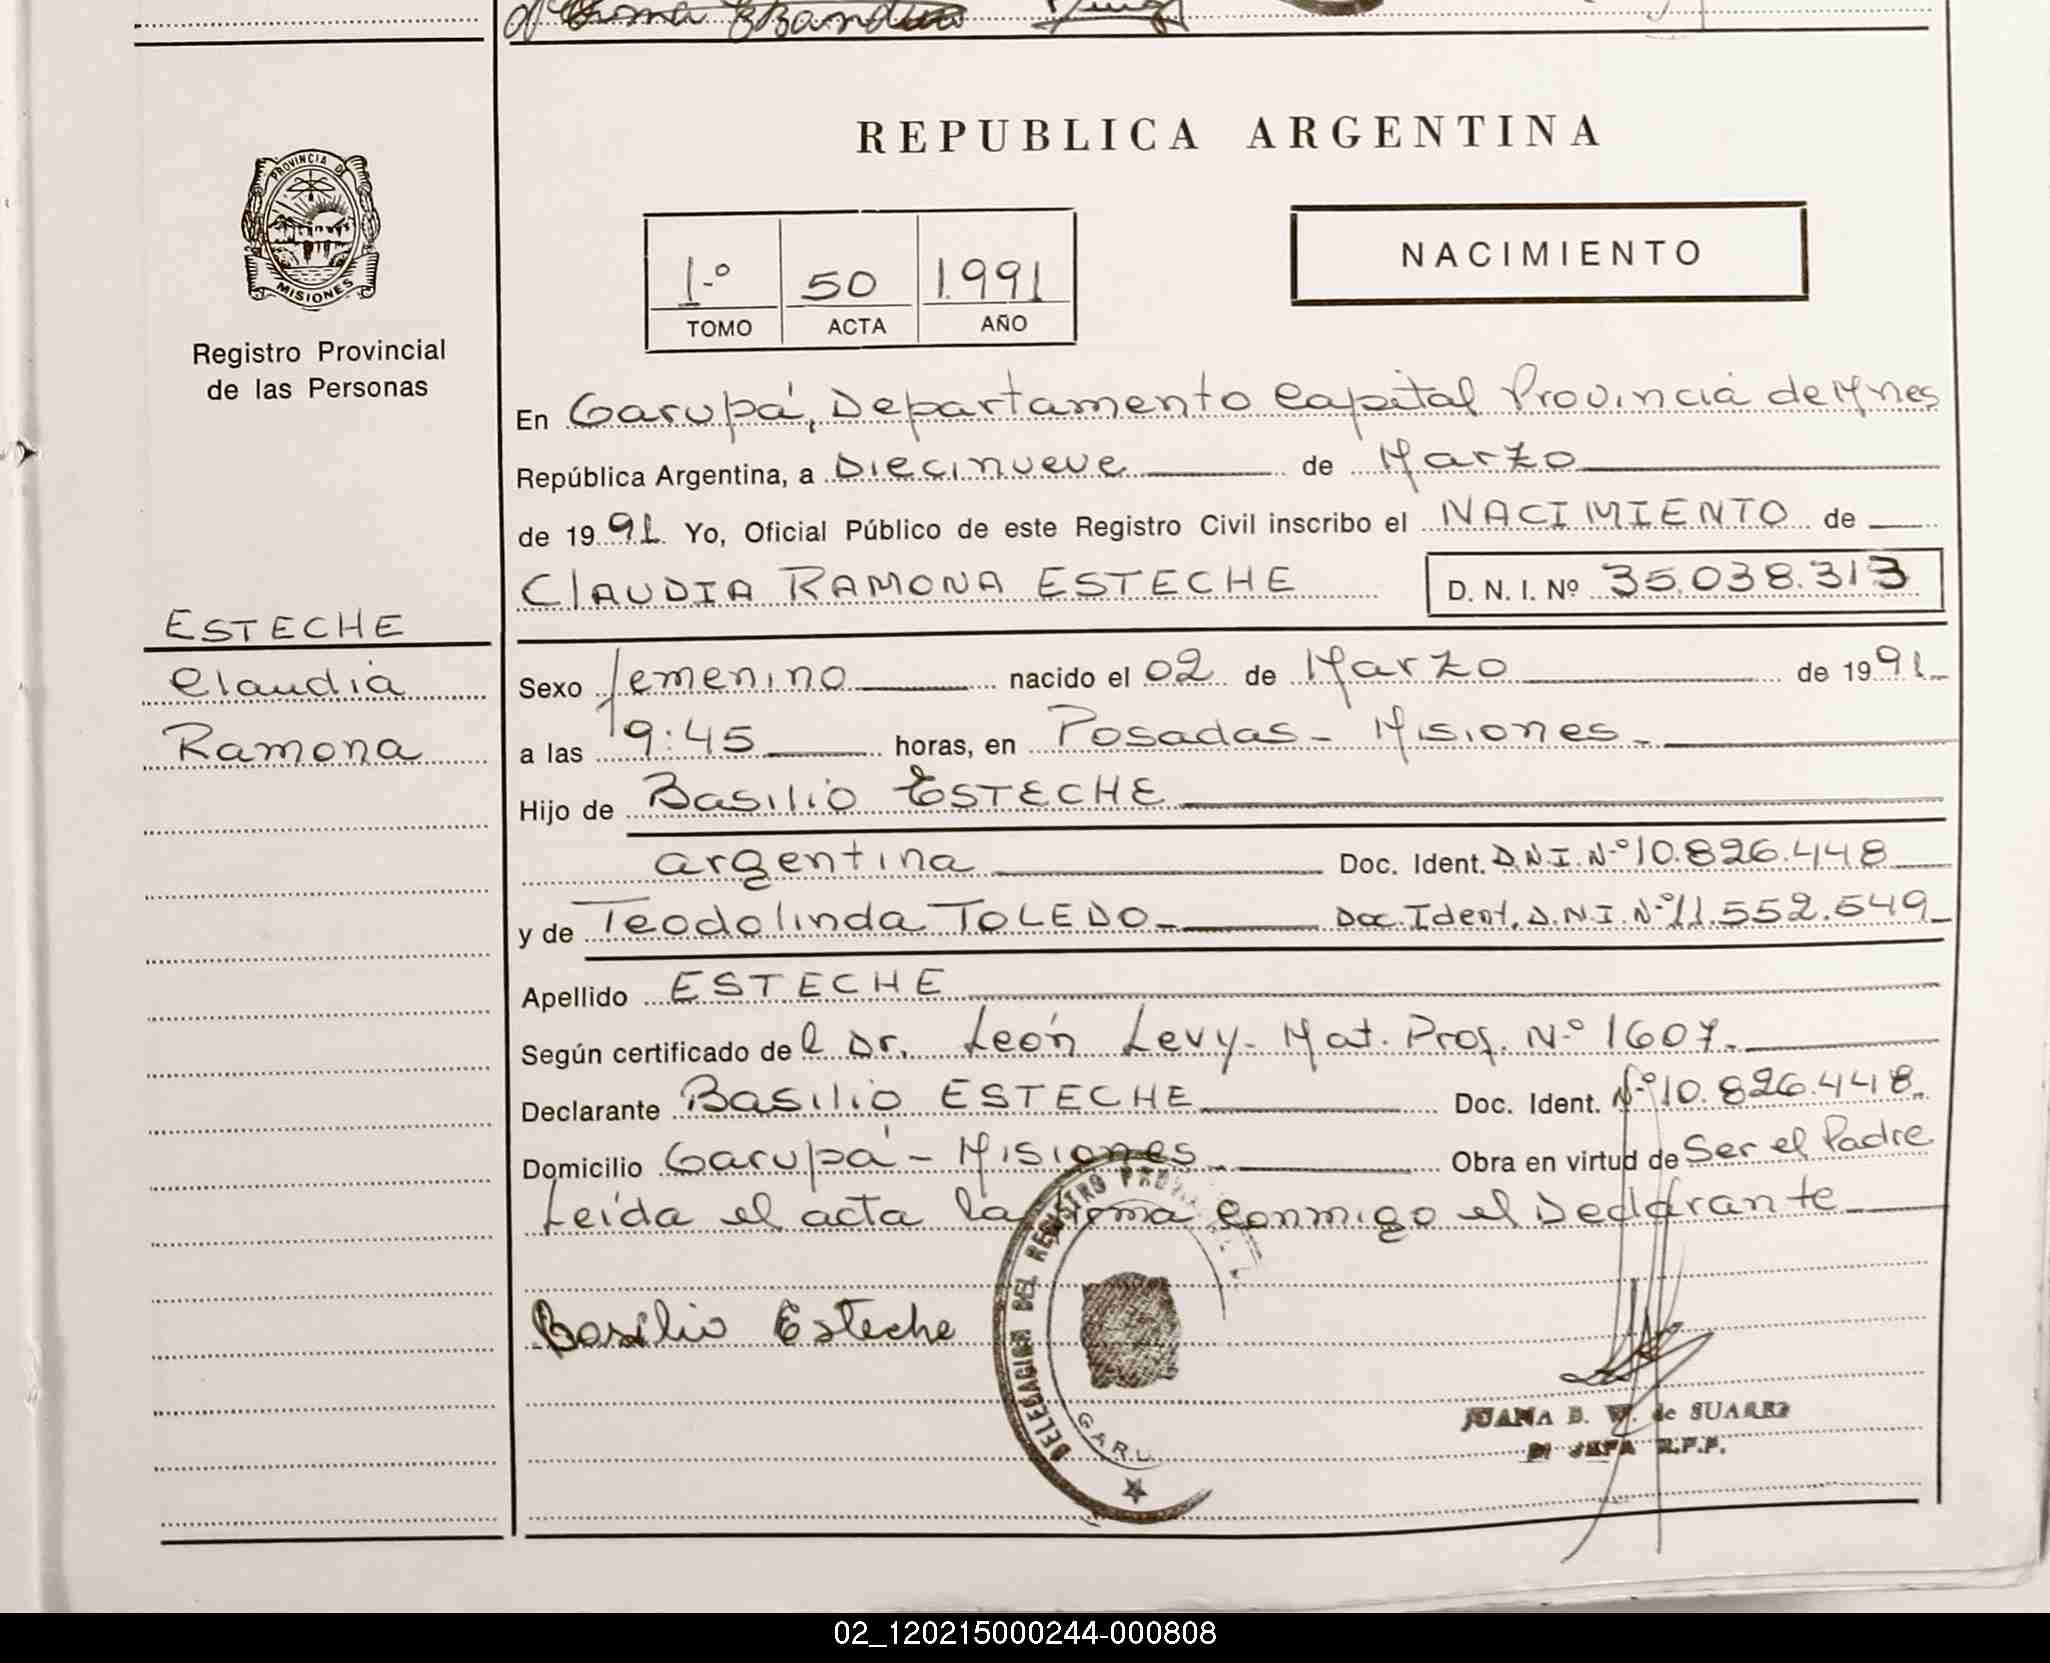 PROVINCIA DE
MISIONES
Registro Provincial
de las Personas
ESTECHE
Claudia
Ramona
REPUBLICA ARGENTINA
1º 50 1991
TOMO ACTA AÑO
NACIMIENTO
En Garupá, Departamento Capital Provincia de Mnes
República Argentina, a Diecinueve de Marzo
de 1991 Yo, Oficial Público de este Registro Civil inscribo el NACIMIENTO de
CLAUDIA RAMONA ESTECHE D. N. I. Nº 35.038.313
Sexo femenino nacido el 02 de Marzo de 1991
a las 19:45 horas, en Posadas - Misiones -
Hijo de Basilio ESTECHE
argentina Doc. Ident. D.N.I. Nº 10.826.448
y de Teodolinda TOLEDO - Doc. Ident. D.N.I. Nº 11.552.549
Apellido ESTECHE
Según certificado del Dr. León Levy - Mat. Prof. Nº 1607 -
Declarante Basilio ESTECHE Doc. Ident. Nº 10.826.448
Domicilio Garupá - Misiones - Obra en virtud de Ser el Padre
Leída el acta la firma conmigo el Declarante
Basilio Esteche
DELEGACION DEL REGISTRO
GARU
JUANA B. W. de SUAREZ
JEFA R.P.P.
02_120215000244-000808